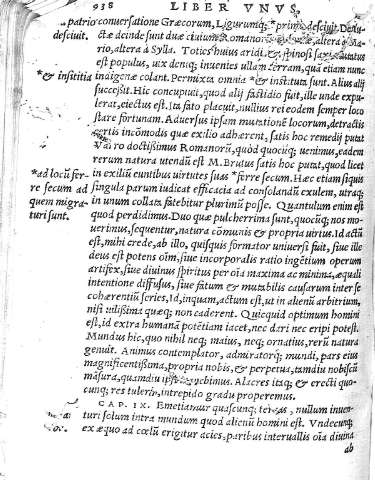 938 LIBER VNVS,
*patrio conuersatione Græcorum, Ligurumq; *prima desciuit. Dedu-
desciuit. ctæ deinde sunt duæ ciuium Romanorū altera à Ma-
rio, altera à Sylla. Toties huius aridi, & spinosi saxi
est populus, uix denq; inuenies ullam terram, quā etiam nunc
*& institia indigenæ colant. Permixta omnia *& instituta sunt. Alius alij
successit. Hic concupiuit, quod alij fastidio fuit, ille unde expu-
lerat, eiectus est. Ita fato placuit, nullius rei eodem semper loco
stare fortunam. Aduersus ipsam mutationē locorum, detractis
incōmodis quæ exilio adhærent, satis hoc remedij putat
Varro doctissimus Romanorū, quod quocūq; uenimus, eadem
rerum natura utendū est. M. Brutus satis hoc putat, quod licet
*ad locū fer- in exilium euntibus uirtutes suas *ferre secum. Hæc etiam si quis
re secum ad singula parum iudicat efficacia ad consolandū exulem, utraq;
quem migra- in unum collata fatebitur plurimū posse. Quantulum enim est
turi sunt. quod perdidimus. Duo quæ pulcherrima sunt, quocūq; nos mo-
uerimus, sequentur, natura cōmunis & propria uirtus. Id actū
est, mihi crede, ab illo, quisquis formator uniuersi fuit, siue ille
deus est potens oīm, siue incorporalis ratio ingētium operum
artifex, siue diuinus spiritus per oīa maxima ac minima, æquali
intentione diffusus, siue fatum & mutabilis causarum inter se
cohærentiū series, Id, inquam, actum est, ut in alienū arbitrium,
nisi uilissima quæq; non caderent. Quicquid optimum homini
est, id extra humanā potētiam iacet, nec dari nec eripi potest.
Mundus hic, quo nihil neq; maius, neq; ornatius, rerū natura
genuit. Animus contemplator, admiratorq; mundi, pars eius
magnificentissima, propria nobis, & perpetua, tamdiu nobiscū
māsura, quamdiu ipsi manebimus. Alacres itaq; & erecti quo-
cunq; res tulerit, intrepido gradu properemus.
CAP. IX. Emetiamur quascunq; terras, nullum inuen-
turi solum intra mundum quod alienū homini est. Vndecunq;
ex æquo ad cœlū erigitur acies, paribus interuallis oīa diuina
ab